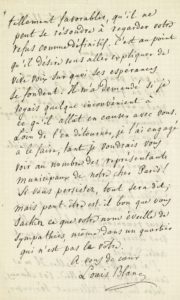 tellement favorables, qu'il ne
peut se résoudre à regarder votre
refus comme définitif. C'est au point
qu'il désire vous aller expliquer de
vive voix sur quoi ses espérances
se fondent. Il m'a demandé si je
voyais quelque inconvénient à
ce qu'il allât en causer avec vous.
Loin de l'en détourner, je l'ai engagé
à le faire, tant je voudrais vous
voir au nombre des représentants
municipaux de notre cher Paris!
Si vous persistez, tout sera dit;
mais peut-être est-il bon que vous
sachiez ce que votre nom éveille de
sympathies, même dans un quartier
qui n'est pas le vôtre.
A vous de cœur
Louis Blanc